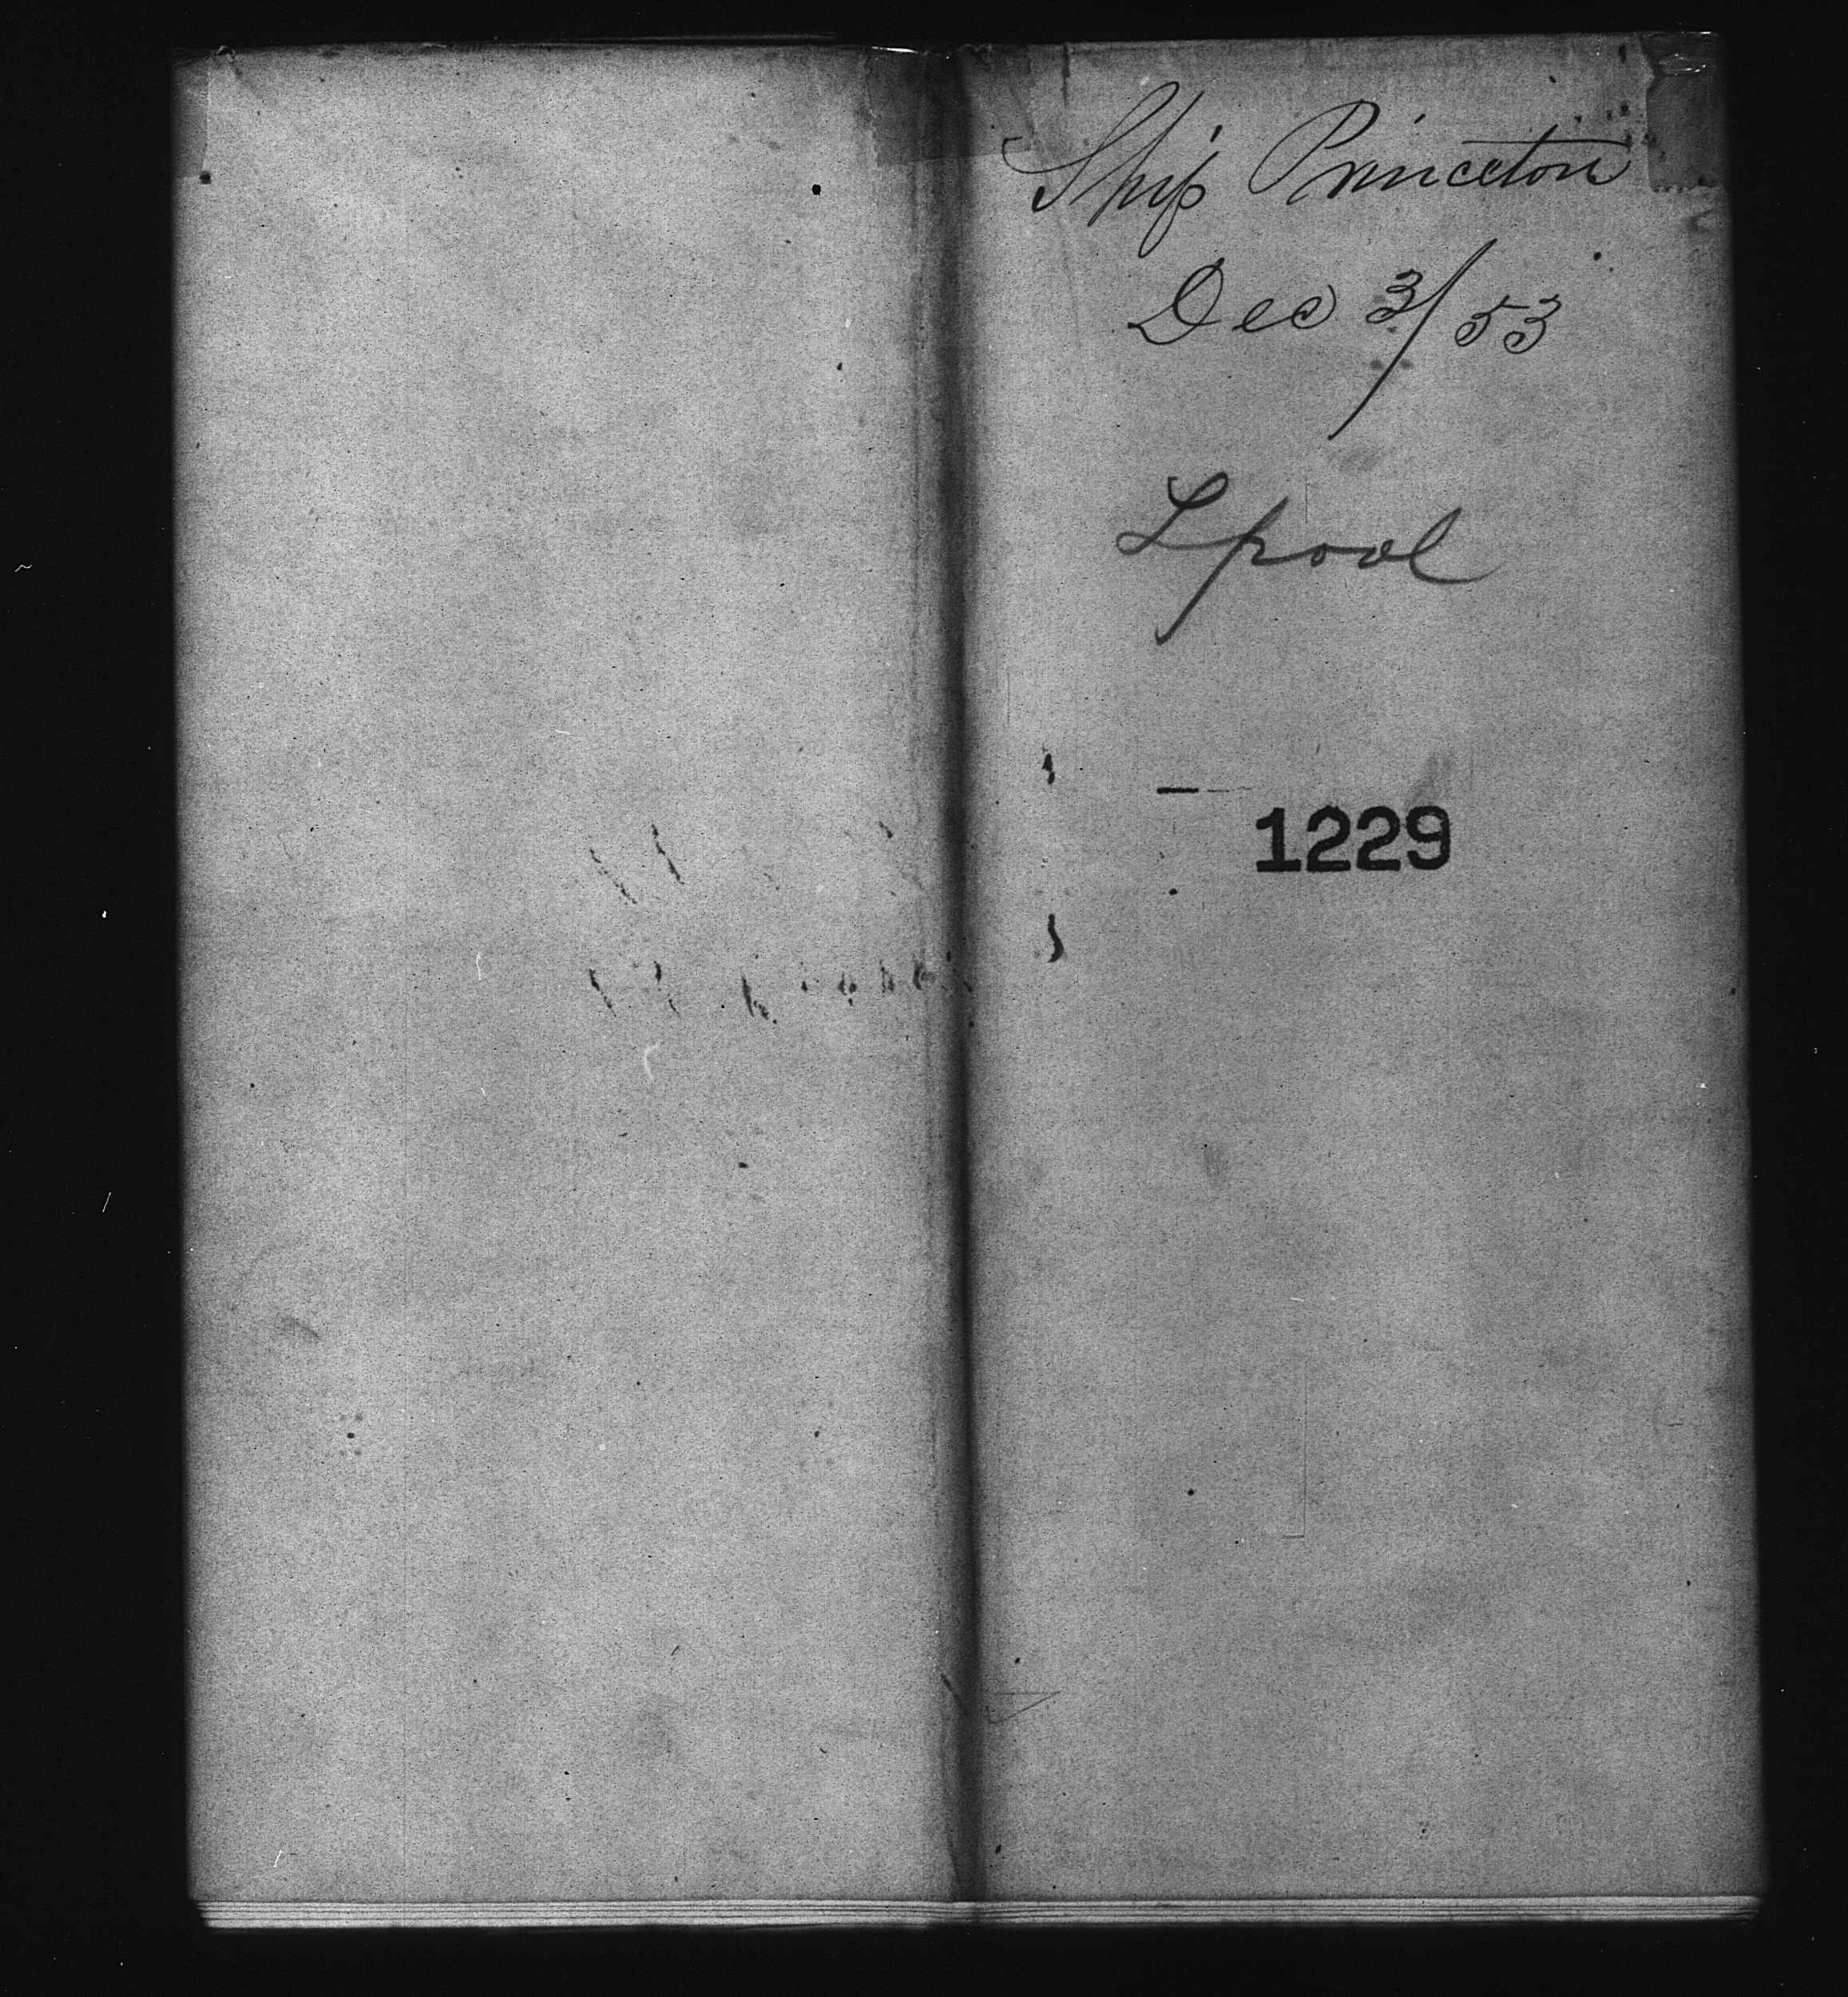 Ship Princeton
Dec 3/53
Lpool
1229